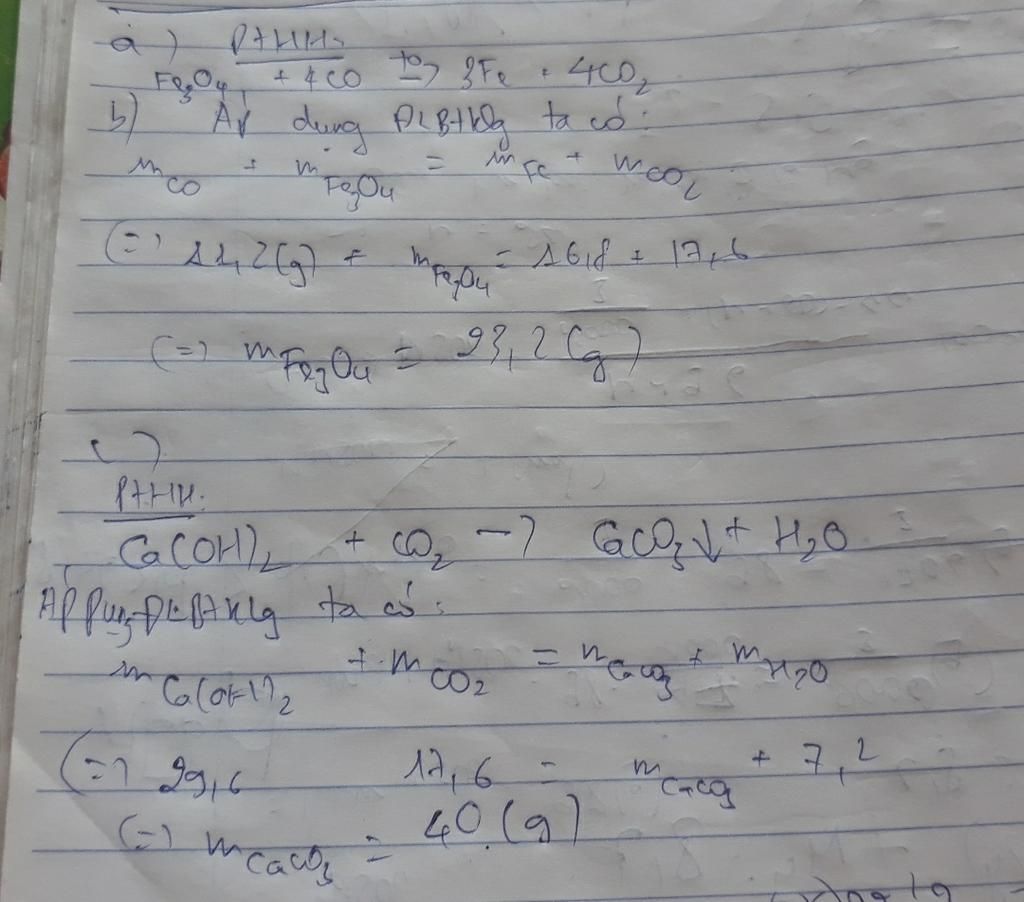 a) PTHH:
Fe3O4 + 4CO to→ 3Fe + 4CO2
b) Áp dụng ĐLBTKLg ta có:
mCO + mFe3O4 = mFe + mCO2
(=) 11,2(g) + mFe3O4 = 16,8 + 17,6
(=) mFe3O4 = 23,2(g)
c)
PTHH:
Ca(OH)2 + CO2 → CaCO3↓ + H2O
ĐLBTKLg ta có:
mCa(OH)2 + mCO2 = mCaCO3 + mH2O
(=) 29,6 17,6 = mCaCO3 + 7,2
(=) mCaCO3 = 40(g)